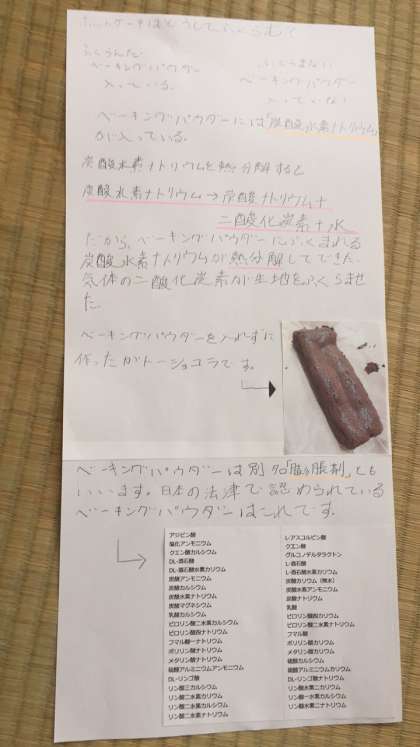 ホットケーキはどうしてふくらむ？
ふくらんだ
ベーキングパウダー
入っている。
ふくらまない
ベーキングパウダー
入っていない
ベーキングパウダーには「炭酸水素ナトリウム」
が入っている。
炭酸水素ナトリウムを熱分解すると
炭酸水素ナトリウム→炭酸ナトリウム+
二酸化炭素+水
だから、ベーキングパウダーにふくまれる
炭酸水素ナトリウムが熱分解してできた、
気体の二酸化炭素が生地をふくらませ
た。
ベーキングパウダーを入れずに
作ったガトーショコラです。
ベーキングパウダーは別名「膨張剤」とも
いいます。日本の法律で認められている
ベーキングパウダーはこれです。
アジピン酸
塩化アンモニウム
クエン酸カルシウム
DL-酒石酸
DL-酒石酸水素カリウム
炭酸アンモニウム
炭酸カルシウム
炭酸水素ナトリウム
炭酸マグネシウム
乳酸カルシウム
ピロリン酸二水素カルシウム
ピロリン酸四ナトリウム
フマル酸一ナトリウム
ポリリン酸ナトリウム
メタリン酸ナトリウム
硫酸アルミニウムアンモニウム
DL-リンゴ酸
リン酸三カルシウム
リン酸二水素アンモニウム
リン酸二水素カルシウム
リン酸二水素ナトリウム
L-アスコルビン酸
クエン酸
グルコノデルタラクトン
L-酒石酸
L-酒石酸水素カリウム
炭酸カリウム（無水）
炭酸水素アンモニウム
炭酸ナトリウム
乳酸
ピロリン酸四カリウム
ピロリン酸二水素ナトリウム
フマル酸
ポリリン酸カリウム
メタリン酸カリウム
硫酸カルシウム
硫酸アルミニウムカリウム
DL-リンゴ酸ナトリウム
リン酸水素二カリウム
リン酸一水素カルシウム
リン酸水素二ナトリウム